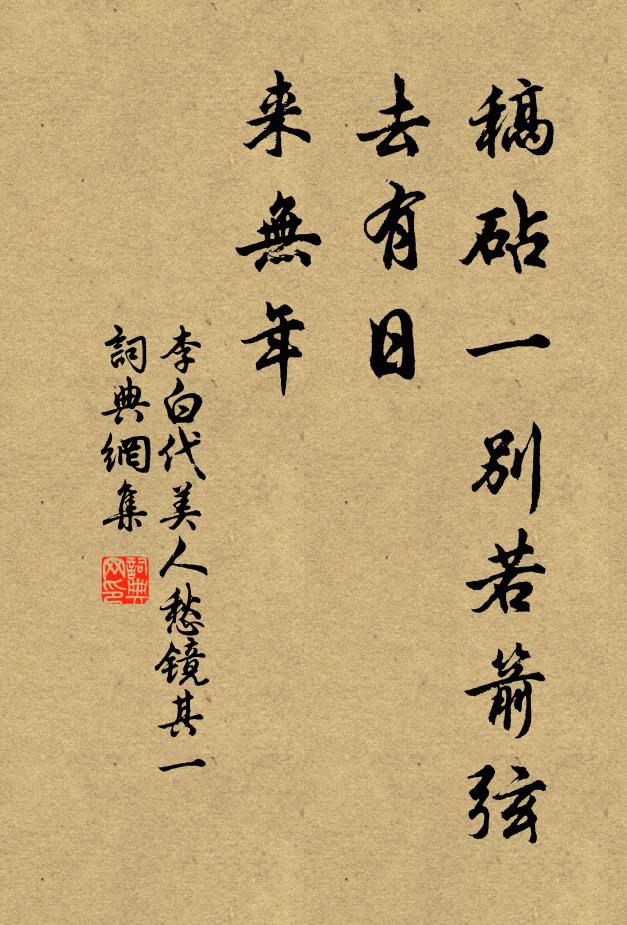 稿砧一別若箭弦
去有日
来無年
李白代美人愁镜其一
詞典網集
詞典网印